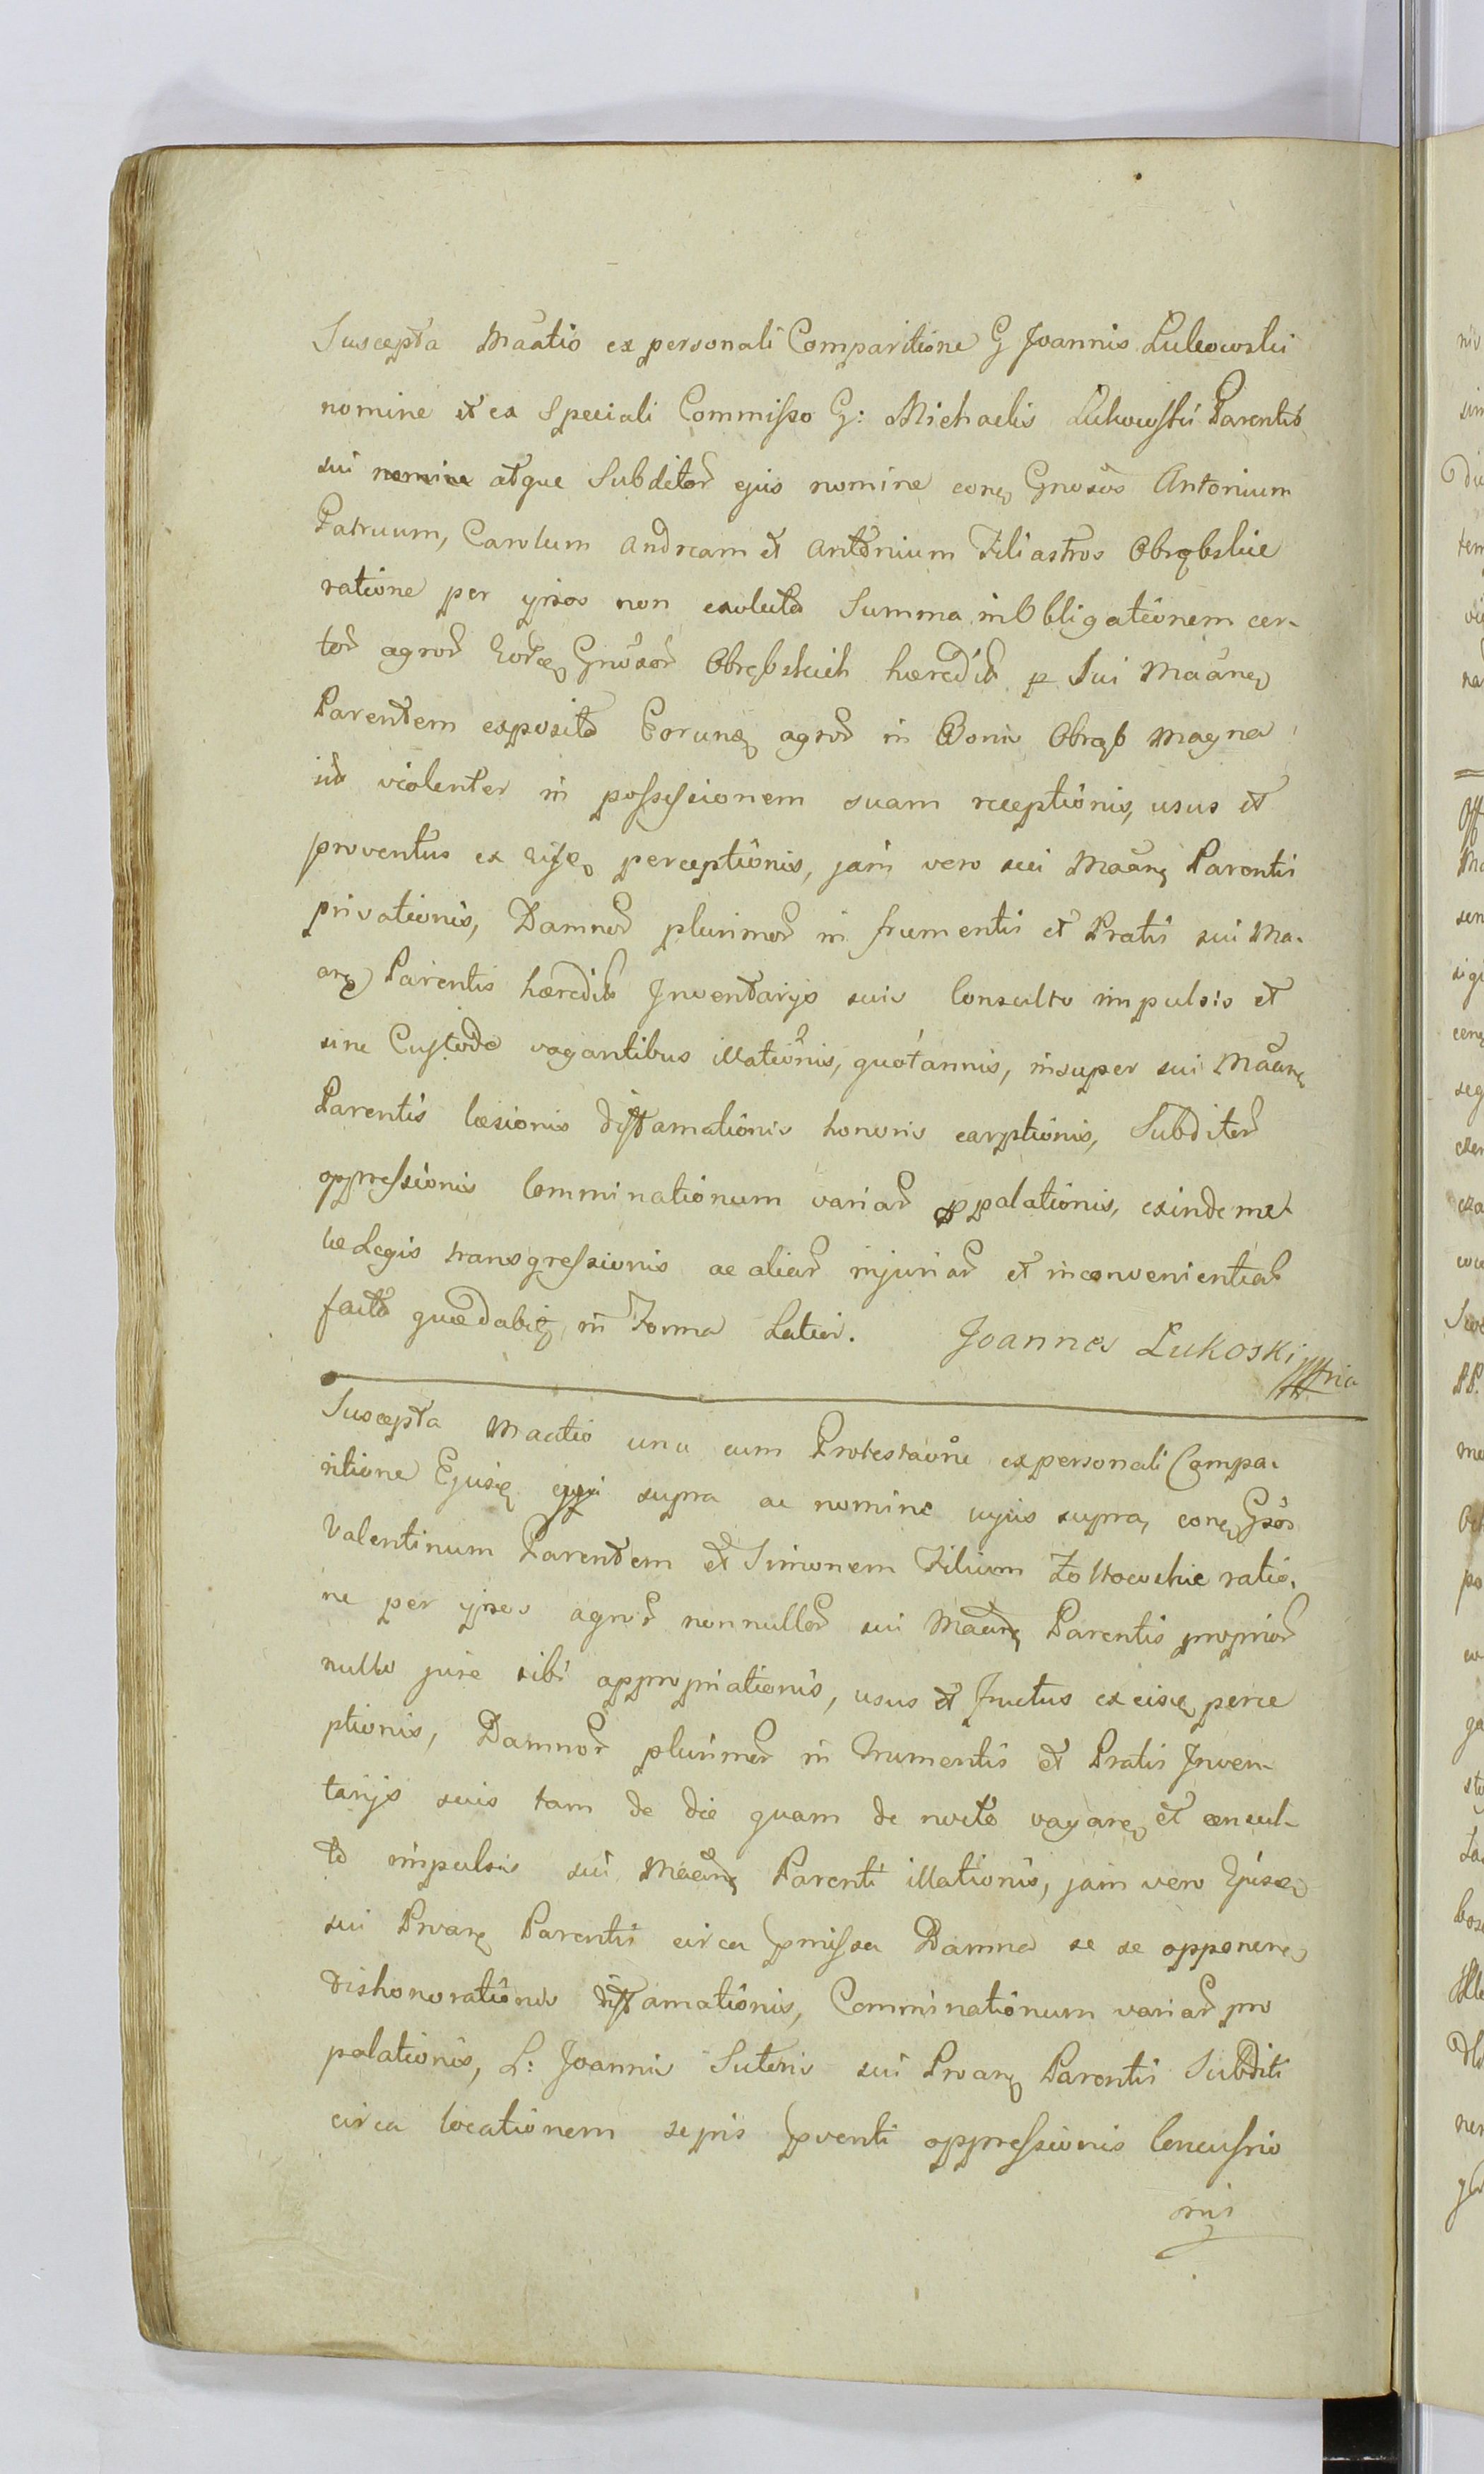 Suscepta Maãtio ex personali Comparitione G Joannis Lukowski
nomine et ex Speciali Commisso G: Michaelis Lukowski Parentis
sui nomine atque Subditor ejus nomine con Gnosos Antonium
Patruum, Carolum Andream et Antonium Filiastros Obrębskie
ratione per ipsos non exoluta Summa in Obligationem cer-
tor agror Gnosor Obrębskich hæredit p Sui Maan
Parentem exposita Eorun agror in Bonis Obręb Magna
violenter in possessionem suam receptionis, usus et
proventus ex perceptionis, jam vero sui Maan Parentis
privationis, Damnor plurimor in frumentis et Pratis sui Ma-
an Parentis hæredit Inventarijs suis Consulto impulsis et
sine Custode vagantibus illationis, quotannis, insuper sui Maan
Parentis læsionis diffamationis honoris carptionis, Subditor
oppressionis Comminationum variar ppalationis, exinde mul
tæ Legis transgressionis ac aliar injuriar et inconvenientiar
facta quæ dabit in Forma Latior. Joannes Lukoski mria
Suscepta Maatio una cum Protestaone ex personali Compa-
ritione Ejusd supra ac nomine cujus supra, con Gsos
Valentinum Parentem et Simonem Filium Żółtowskie ratio-
ne per ipsos agror nonnullor sui Maan Parentis proprior
nullo jure sibi appropriationis, usus et fructus ex eisd perce
ptionis, Damnor plurimor in frumentis et Pratis Inven-
tarijs suis tam de die quam de nocte vagan et consul-
to impulsis sui Maan Parenti illationis, jam vero Ipsæ
sui Prãn Parentis circa pmissa Damna se se opponen
dishonorationis diffamationis, Comminationum variar pro
palationis, L: Joannis Suteris sui Prãn Parentis Subditi
circa locationem sepis pventi oppressionis Concussio
nis